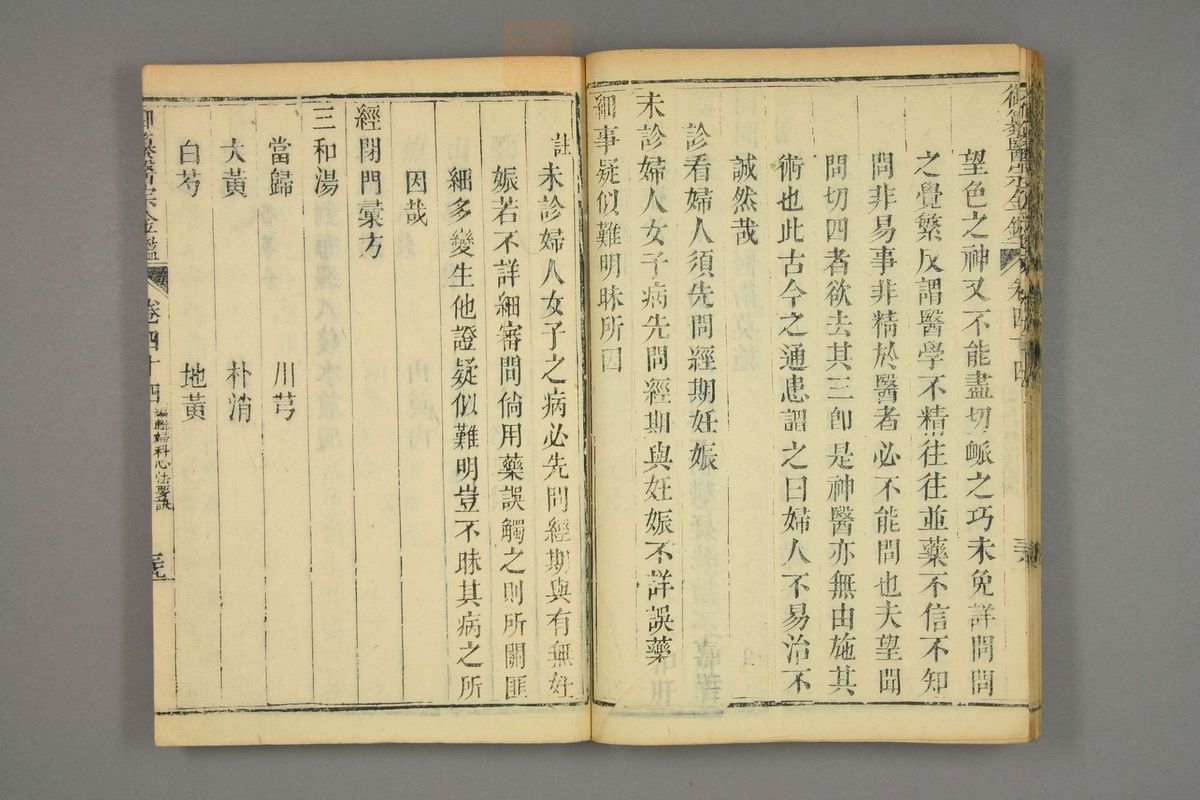 御纂醫宗金鑑 卷四十四
望色之神又不能盡切衇之巧未免詳問問
之覺繁反謂醫學不精往往並藥不信不知
問非易事非精於醫者必不能問也夫望聞
問切四者欲去其三卽是神醫亦無由施其
術也此古今之通患謂之曰婦人不易治不
誠然哉
診看婦人須先問經期妊娠
未診婦人女子病先問經期與妊娠不詳誤藥
細事疑似難明昧所因
註未診婦人女子之病必先問經期與有無妊
娠若不詳細審問倘用藥誤觸之則所關匪
細多變生他證疑似難明豈不昧其病之所
因哉
經閉門彙方
三和湯
當歸 川芎
大黃 朴消
白芍 地黃
御纂醫宗金鑑 卷四十四 編輯婦科心法要訣 三九